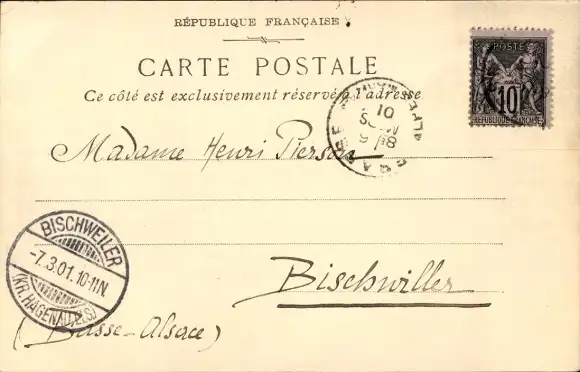 RÉPUBLIQUE FRANÇAISE
CARTE POSTALE
Ce côté est exclusivement réservé à l'adresse
POSTE
10
RÉPUBLIQUE FRANÇAISE
Madame Henri Pierson
BISCHWEILER
-7.3.01.10-11N.
(KR. HAGENAU, ELS.)
Bischwiller
(Basse-Alsace)